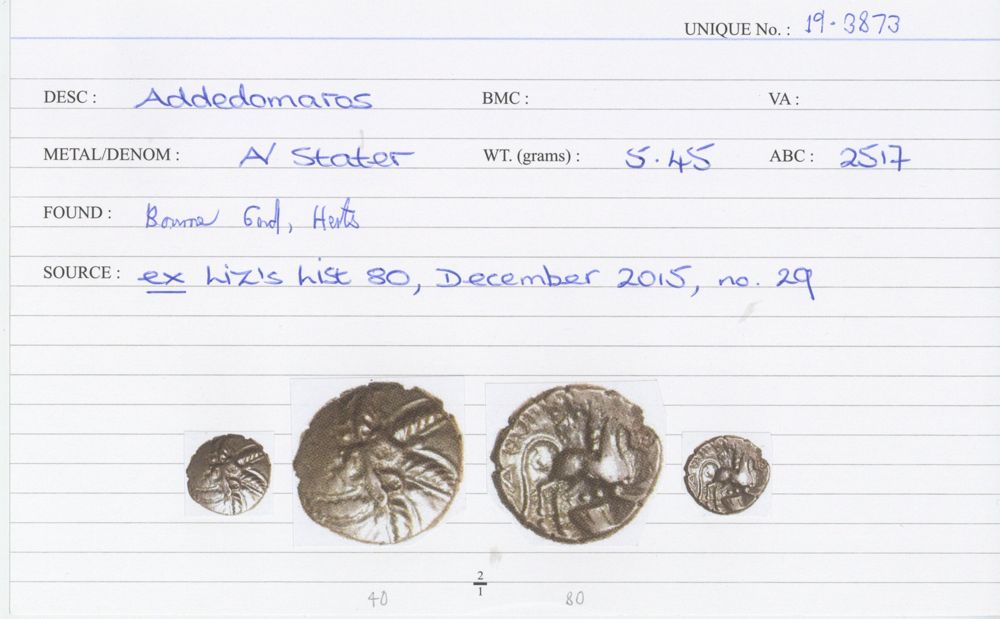 UNIQUE No. : 19-3873
DESC : Addedomaros BMC : VA :
METAL/DENOM : A/ Stater WT. (grams) : 5.45 ABC : 2517
FOUND : Bourne End, Herts
SOURCE : ex Liz's List 80, December 2015, no. 29
2
1
40 80